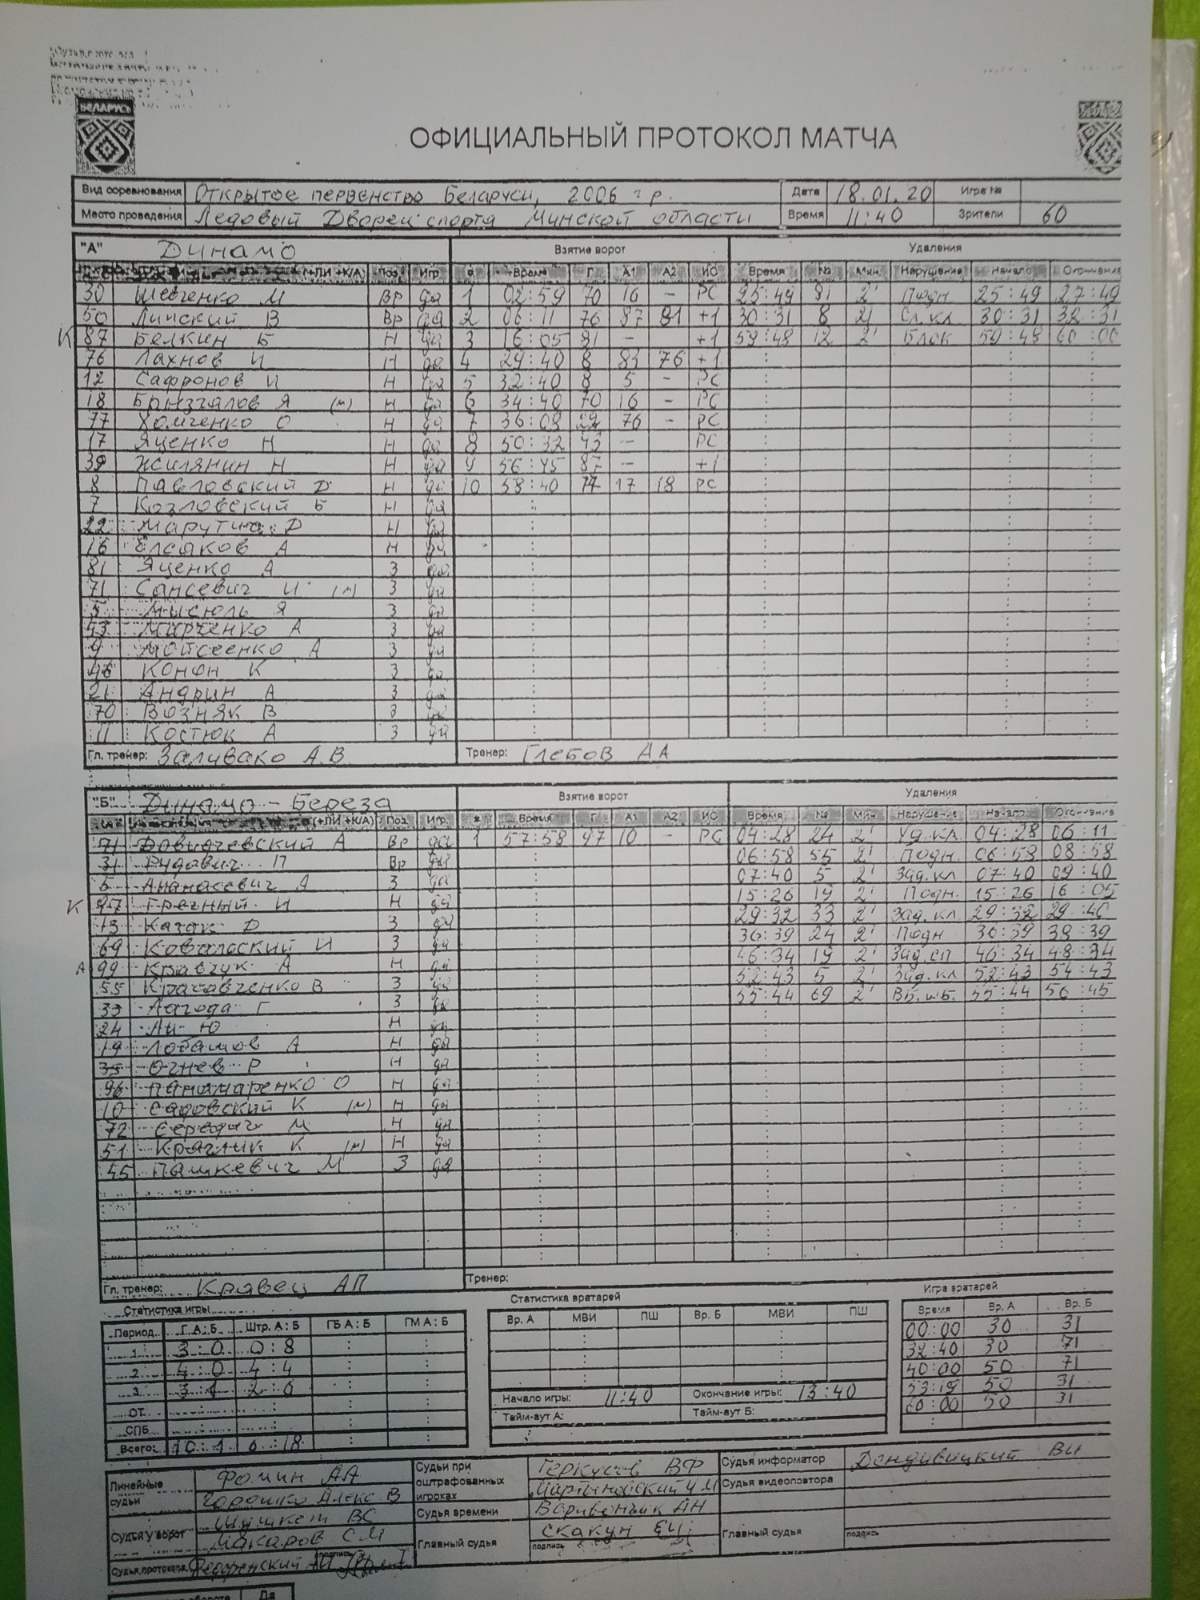 БЕЛАРУСЬ
ОФИЦИАЛЬНЫЙ ПРОТОКОЛ МАТЧА
Вид соревнования Открытое первенство Беларуси, 2006 г.р. Дата 18.01.20 Игра №
Место проведения Ледовый Дворец спорта Минской области Время 11:40 Зрители 60
"А" Динамо Взятие ворот Удаления
(+ЛИ +К/А) Поз Игр Время Г А1 А2 ИС Время № Мин Нарушение Начало Окончание
30 Шевченко М Вр да 1 02:59 70 16 - РС 25:49 81 2' Подн. 25:49 27:49
50 Линский В Вр да 2 06:11 76 87 81 +1 30:31 8 2' 30:31 32:31
К 87 Белкин Б Н да 3 16:05 81 - +1 59:48 12 2' Блок 59:48 60:00
76 Лахнов И Н да 4 29:40 8 83 76 +1
12 Сафронов И Н да 5 32:40 8 5 - РС
18 Брызгалов Я (м) Н да 6 34:40 70 16 - РС
77 Хомченко О Н да 7 36:08 22 76 - РС
17 Яценко Н Н да 8 50:32 43 - РС
39 Жилянин Н Н да 9 56:45 87 - +1
8 Павловский Д Н да 10 58:40 77 17 18 РС
7 Козловский Б Н да
22 Марутин Д Н да
16 Елсаков А Н да
81 Яценко А З да
71 Сансевич И (м) З да
5 Мысюль Я З да
43 Марченко А З да
9 Мойсеенко А З да
46 Конон К З да
21 Андрин А З да
70 Возняк В З да
11 Костюк А З да
Гл. тренер: Заливако А.В. Тренер: Глебов АА
"Б" Динамо - Береза Взятие ворот Удаления
(+ЛИ +К/А) Поз Игр. Время Г А1 А2 ИС Время № Мин Нарушение Начало Окончание
71 А Вр да 1 57:58 97 10 - РС 04:28 24 2' Уд.кл. 04:28 06:11
31 Рудович П Вр да 06:58 55 2' Подн. 06:58 08:58
5 Ананасевич А З да 07:40 5 2' Зад.кл 07:40 09:40
К 97 Гречный И Н да 15:26 19 2' Подн. 15:26 16:05
13 Казак Д З да 29:32 33 2' Зад.кл 29:32 29:40
69 Ковальский И З да 36:39 24 2' Подн 36:39 38:39
А 99 Кравчук А Н да 46:34 19 2' Зад.сп 46:34 48:34
55 Кравченко В З да 52:43 5 2' Зад.кл 52:43 54:43
33 Лагода Г З да 55:44 69 2' 55:44 56:45
24 Ли Ю Н да
19 Лобашов А Н да
35 Огнев Р Н да
96 Панамаренко О Н да
10 Садовский К (м) Н да
72 Середич М Н да
51 Крачлик К (м) Н да
45 Пашкевич М З да
Гл. тренер: Кравец АП Тренер:
Статистика игры Статистика вратарей Игра вратарей
Период Г А:Б Штр. А:Б ГБ А:Б ГМ А:Б Вр. А МВИ ПШ Вр. Б МВИ ПШ Время Вр. А Вр. Б
1 3:0 0:8 00:00 30 31
2 4:0 4:4 32:40 30 71
3 3:1 2:6 40:00 50 71
ОТ 53:19 50 31
СПБ 60:00 50 31
Всего: 10:1 6:18
Начало игры: 11:40 Окончание игры: 13:40
Тайм-аут А: Тайм-аут Б:
Линейные судьи Фомин АА Горошко Алекс В
Судьи при оштрафованных игроках Геркусов ВФ
Судья информатор ВИ
Судья видеоповтора
Судья у ворот Шушкет ВС Макаров С.М
Судья времени АН
Главный судья Скакун ЕЧ подпись
Главный судья подпись
Судья протокола подпись
Да